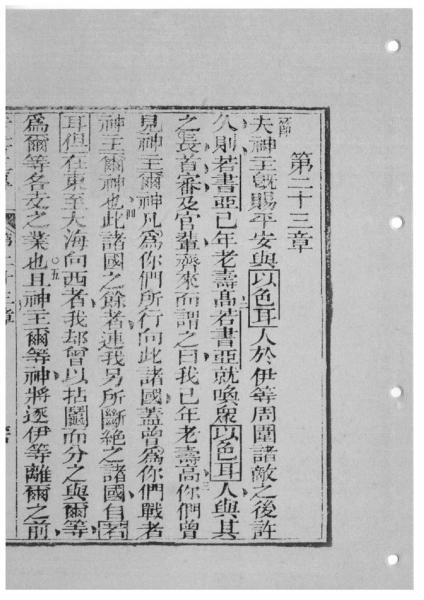 第二十三章
節夫神主既賜平安與以色耳人於伊等周圍諸敵之後許
久則若書亞已年老壽高二若書亞就喚衆以色耳人與其
之長首審及官輩齊來而謂之曰我已年老壽高三你們曾
見神主爾神凡爲你們所行向此諸國蓋曾爲你們戰者
神主爾神也四此諸國之餘者連我另所斷絕之諸國自若
耳但在東至大海向西者我却曾以拈鬮而分之與爾等
爲爾等各支之業也五且神主爾等神將逐伊等離爾之前
第二十三章